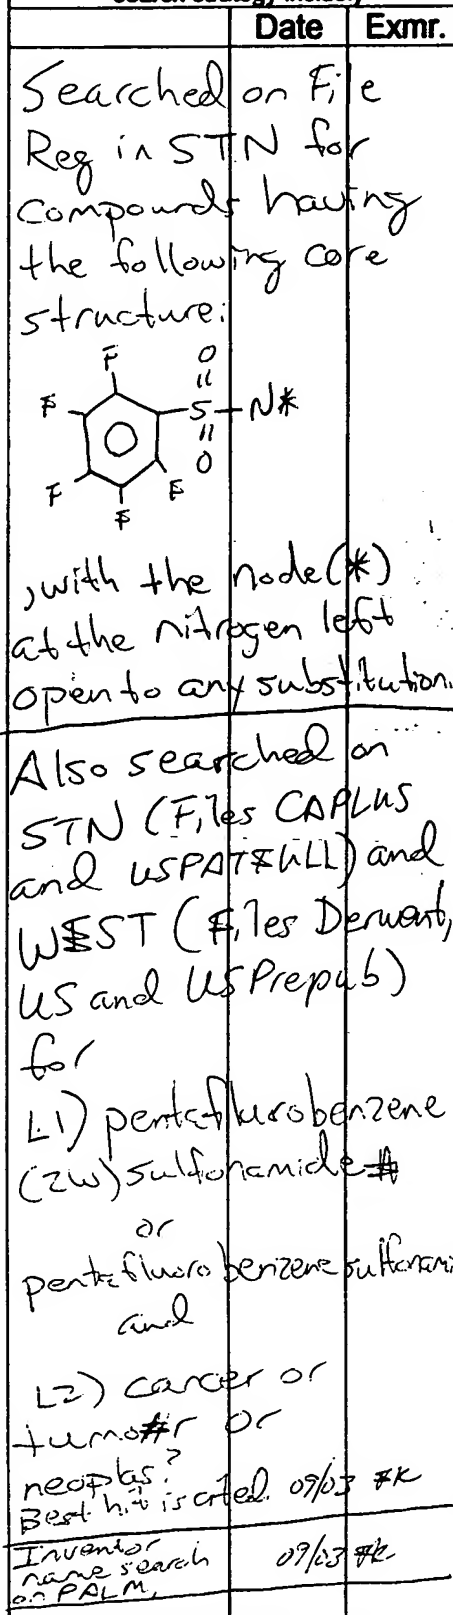 Search Strategy Include
Date Exmr.
Searched on File
Reg in STN for
compounds having
the following core
structure:
F O
F S N*
F F O
F
, with the node (*)
at the nitrogen left
open to any substitution.
Also searched on
STN (Files CAPLUS
and USPATFULL) and
WEST (Files Derwent,
US and US Prepub)
for
L1) pentaflurobenzene
(2w) sulfonamide#
or
pentafluorobenzenesulfonami
and
L2) cancer or
tumo#r or
neoplas?
Best hit is cited. 09/03 FK
Inventor
name search 09/03 FK
on PALM.